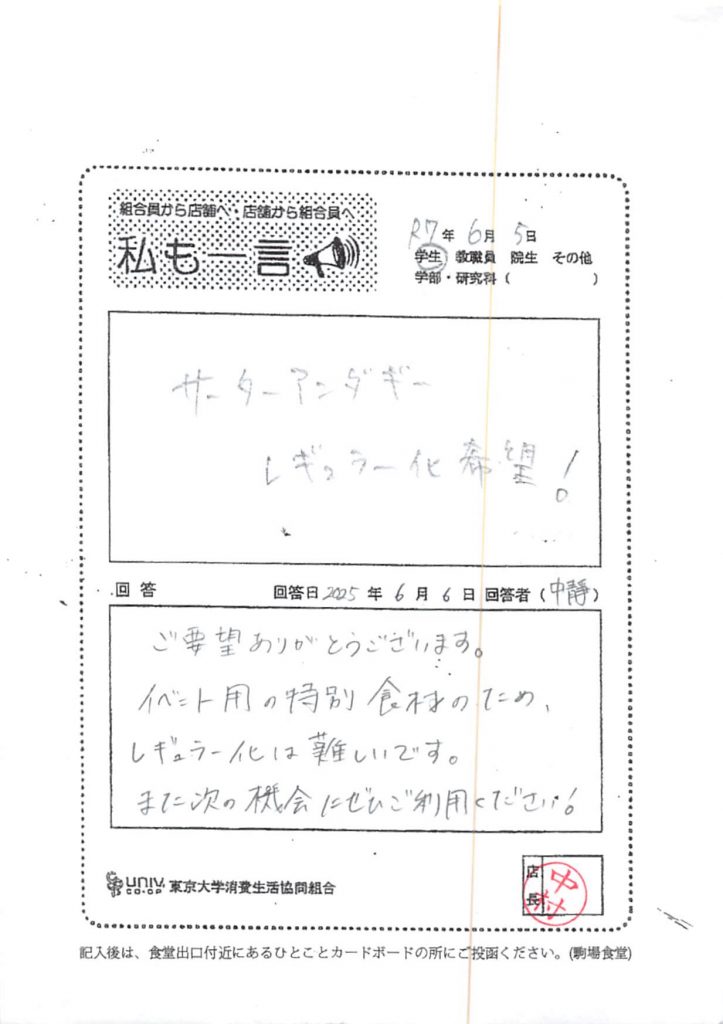 組合員から店舗へ・店舗から組合員へ
私も一言
R7年 6月 5日
学生 教職員 院生 その他
学部・研究科( )
サーターアンダギー
レギュラー化希望!
回答 回答日2025年 6月 6日 回答者(中静)
ご要望ありがとうございます。
イベント用の特別食材のため、
レギュラー化は難しいです。
また次の機会にぜひご利用ください!
UNIV. CO-OP 東京大学消費生活協同組合
店長 中村
記入後は、食堂出口付近にあるひとことカードボードの所にご投函ください。(駒場食堂)